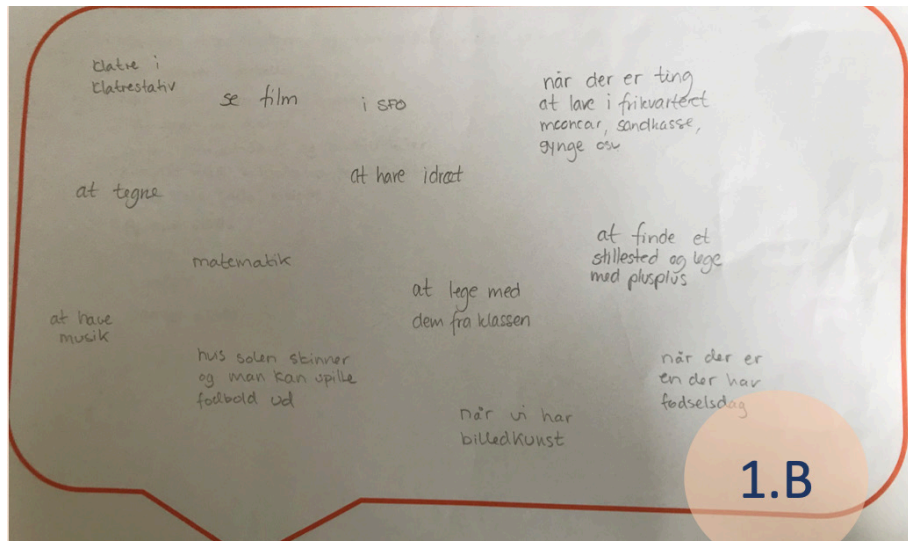 klatre i
klatrestativ
se film
i SFO
når der er ting
at lave i frikvarteret
mooncar, sandkasse,
gynge osv
at tegne
at have idræt
matematik
at finde et
stillested og lege
med plusplus
at lege med
dem fra klassen
at have
musik
hvis solen skinner
og man kan spille
fodbold ud
når der er
en der har
fødselsdag
når vi har
billedkunst
1.B